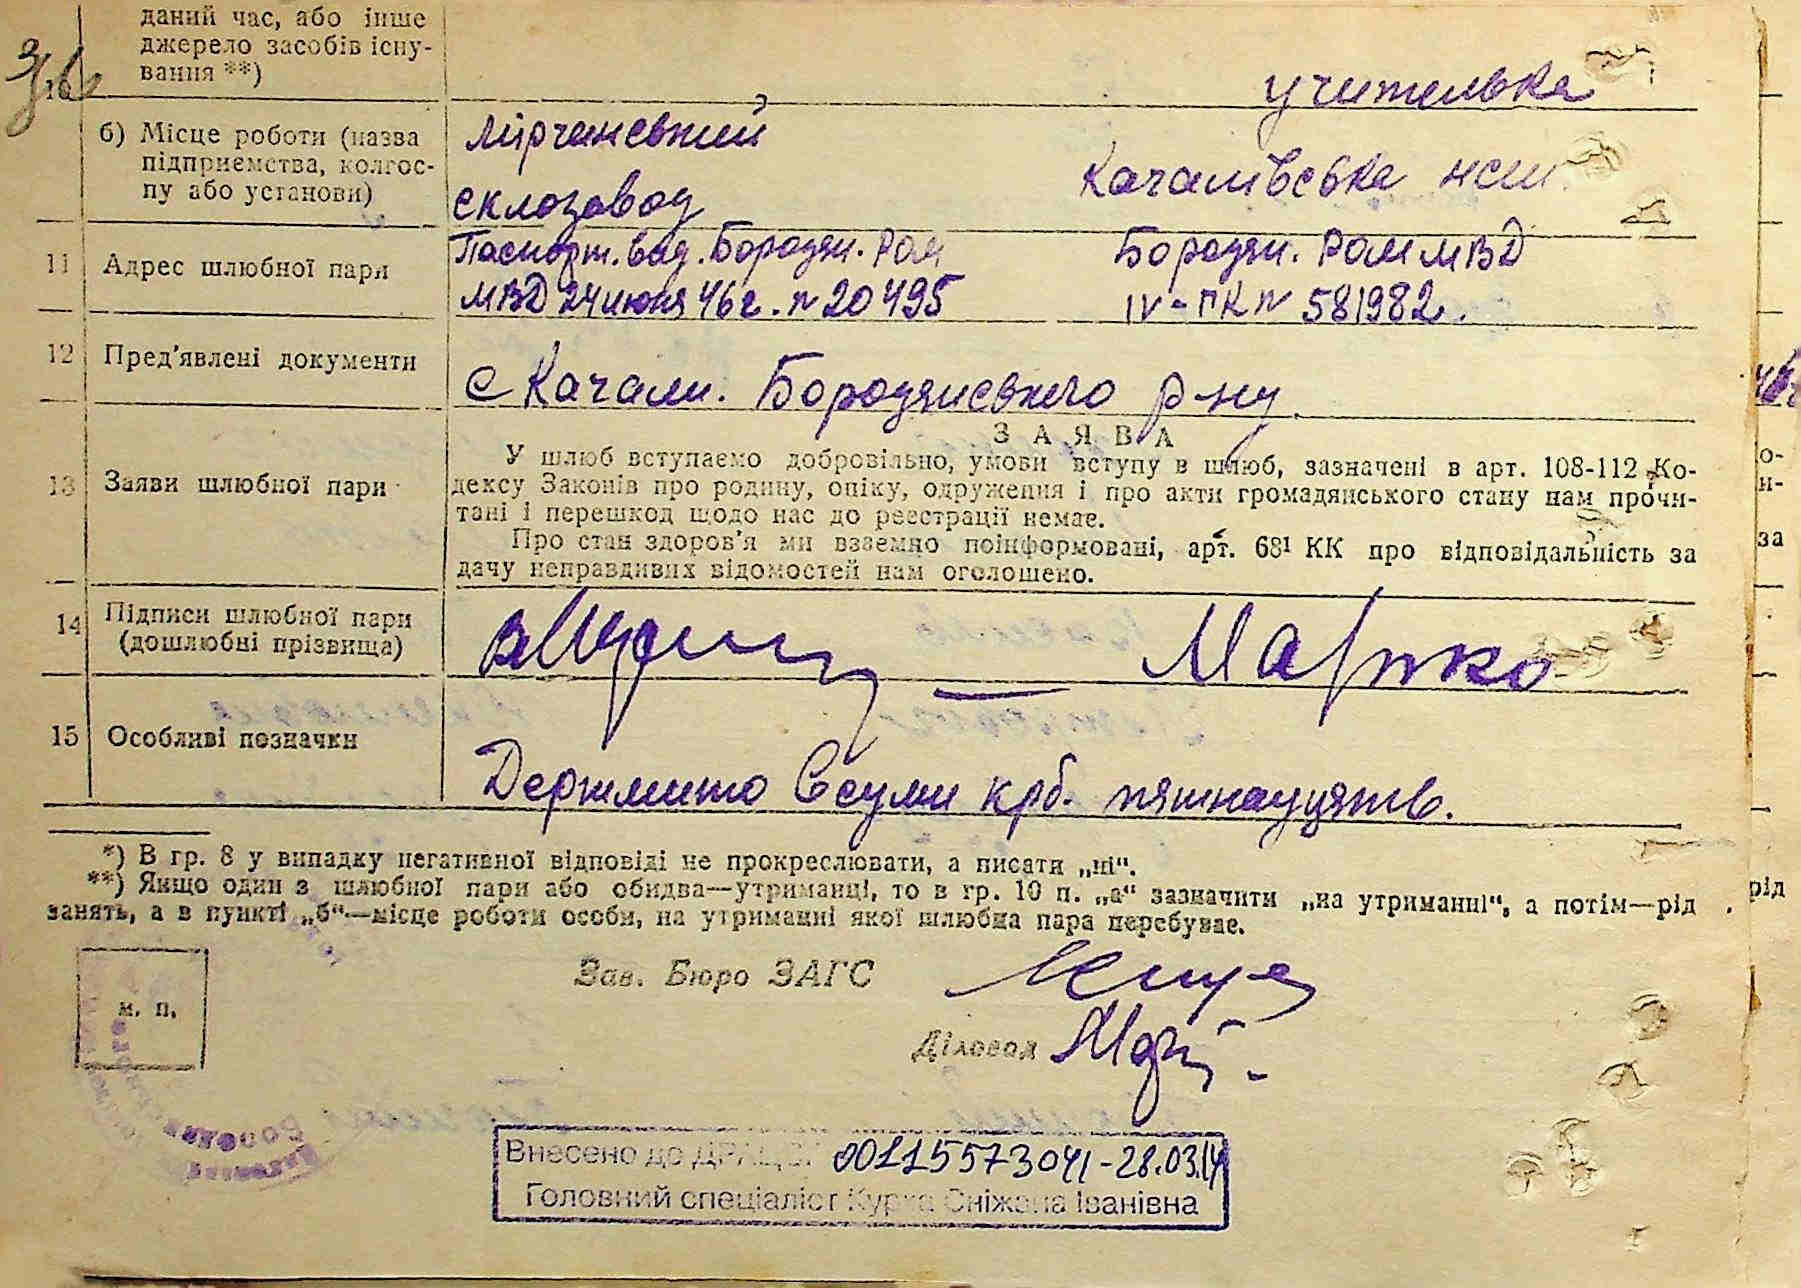 даний час, або інше
джерело засобів існу-
вання **)
учителька
б) Місце роботи (назва
підприємства, колгос-
пу або установи)
Мірчанський
склозавод
Качалівська нсш
11 Адрес шлюбної пари
Паспорт. вид. Бородян. РОМ
МВД 24 июня 46 г. n 20495
Бородян. РОМ МВД
IV-ПК n 581982.
12 Пред'явлені документи
с Качали. Бородянського р-ну
13 Заяви шлюбної пари
ЗАЯВА
У шлюб вступаємо добровільно, умови вступу в шлюб, зазначені в арт. 108-112 Ко-
дексу Законів про родину, опіку, одруження і про акти громадянського стану нам прочи-
тані і перешкод щодо нас до реєстрації немає.
Про стан здоров'я ми взаємно поінформовані, арт. 68¹ КК про відповідальність за
дачу неправдивих відомостей нам оголошено.
14 Підписи шлюбної пари
(дошлюбні прізвища)
15 Особливі позначки
Держмито в сумі крб. пятнадцять.
*) В гр. 8 у випадку негативної відповіді не прокреслювати, а писати „ні“.
**) Якщо один з шлюбної пари або обидва—утриманці, то в гр. 10 п. „а“ зазначити „на утриманні“, а потім—рід
занять, а в пункті „б“—місце роботи особи, на утриманні якої шлюбна пара перебуває.
Зав. Бюро ЗАГС
м. п.
Діловод
Внесено до ДРАЦСГ 00115573041-28.03.14
Головний спеціаліст Курка Сніжана Іванівна